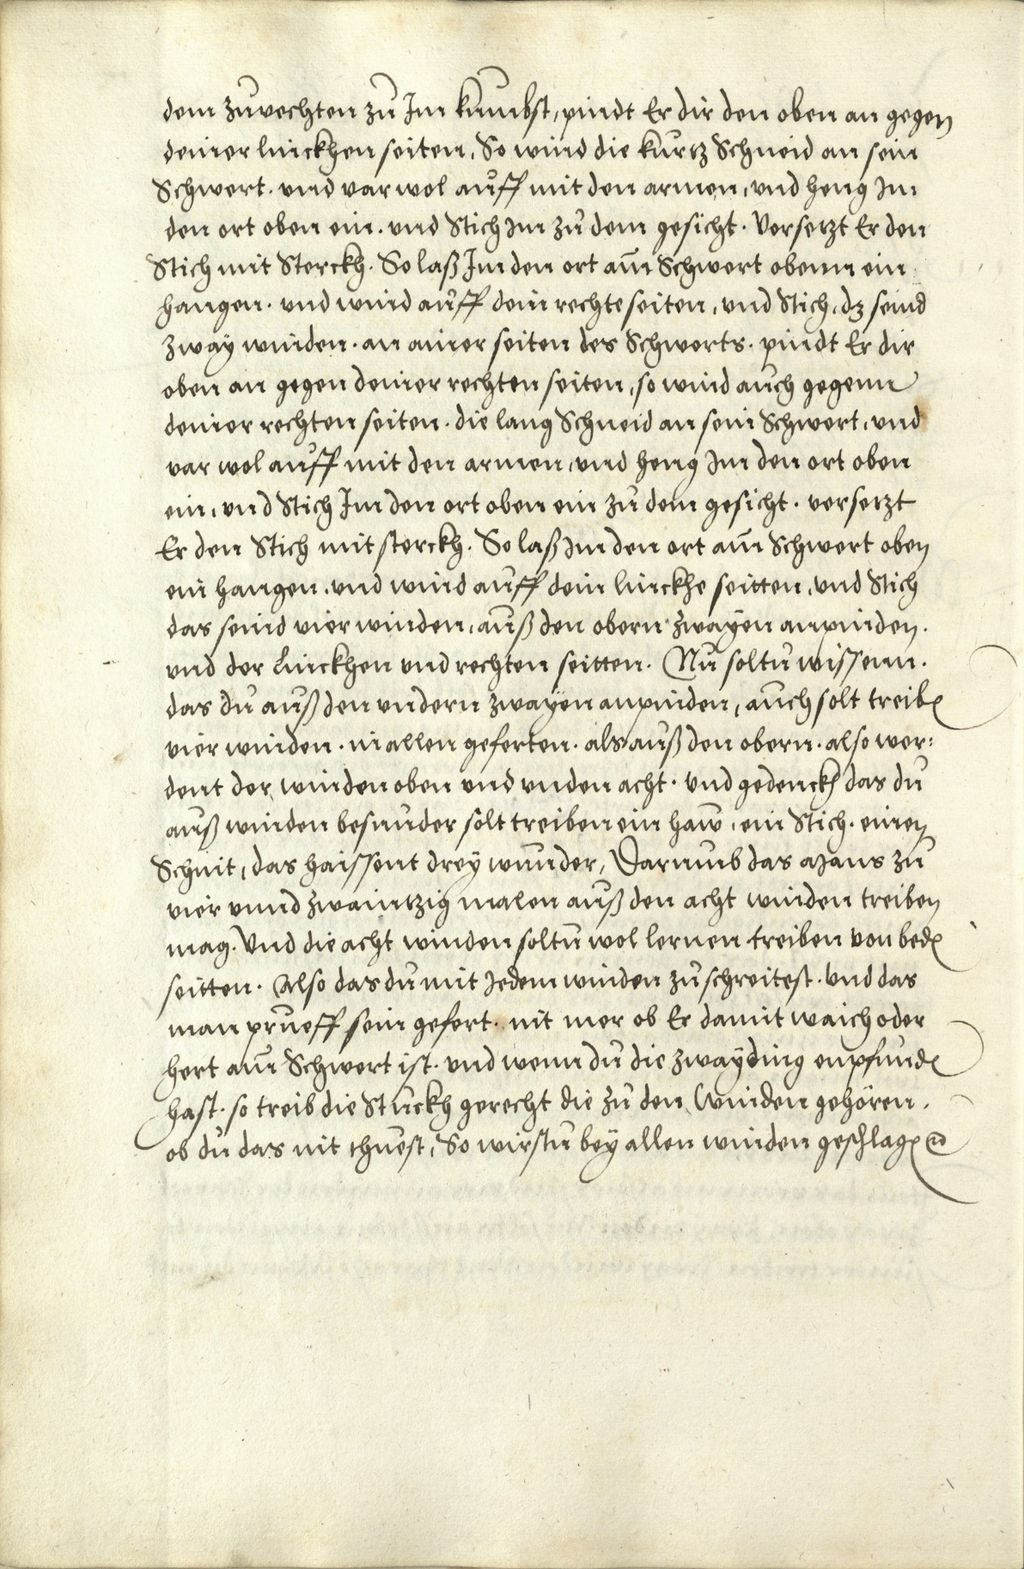 dem zuvechten zu Im kumbst, pindt Er dir den oben an gegen
deiner linckhen seiten, So wind die kurtz Schneid an sein
Schwert. vnd var wol auff mit den armen, vnd heng Im
den ort oben ein. vnd Stich Im zu dem gesicht. Versetzt Er den
Stich mit Sterckh. So laß Im den ort am Schwert obenn ein
hangen. vnd wind auff dein rechte seiten, vnd Stich, dz seind
zway winden. an ainer seiten des Schwerts. pindt Er dir
oben an gegen deiner rechten seiten, so wind auch gegenn
deiner rechten seiten. die lang Schneid an sein Schwert, vnd
var wol auff mit den armen, vnd heng Im den ort oben
ein, vnd Stich Im den ort oben ein zu dem gesicht. versetzt
Er den Stich mit sterckh. So laß Im den ort am Schwert oben
ein hangen. vnd wind auff dein linckhe seitten, vnd Stich
das seind vier winden, auß den obern zwayen anpinden.
vnd der Linckhen vnd rechten seitten. Nu soltu wissenn.
das du auß den vndern zwayen anpinden, auch solt treiben
vier winden. in allen geferten. als auß den obern. also wer:
dent der winden oben vnd vnden acht. vnd gedenckh das du
auß winden besunder solt treiben ein haw, ein Stich. einen
Schnit, das haissent drey wunder, Darumb das mans zu
vier vnnd zwaintzig malen auß den acht winden treiben
mag. Vnd die acht winden soltu wol lernen treiben von beden
seitten. Also das du mit Jedem winden zu schreitest. vnd das
man prueff sein gefert. nit mer ob Er damit waich oder
hert am Schwert ist. vnd wenn du die zway ding enpfunden
hast. so treib die Stuckh gerecht die zu den Winden gehören.
ob du das nit thuest, So wirstu bey allen winden geschlagen